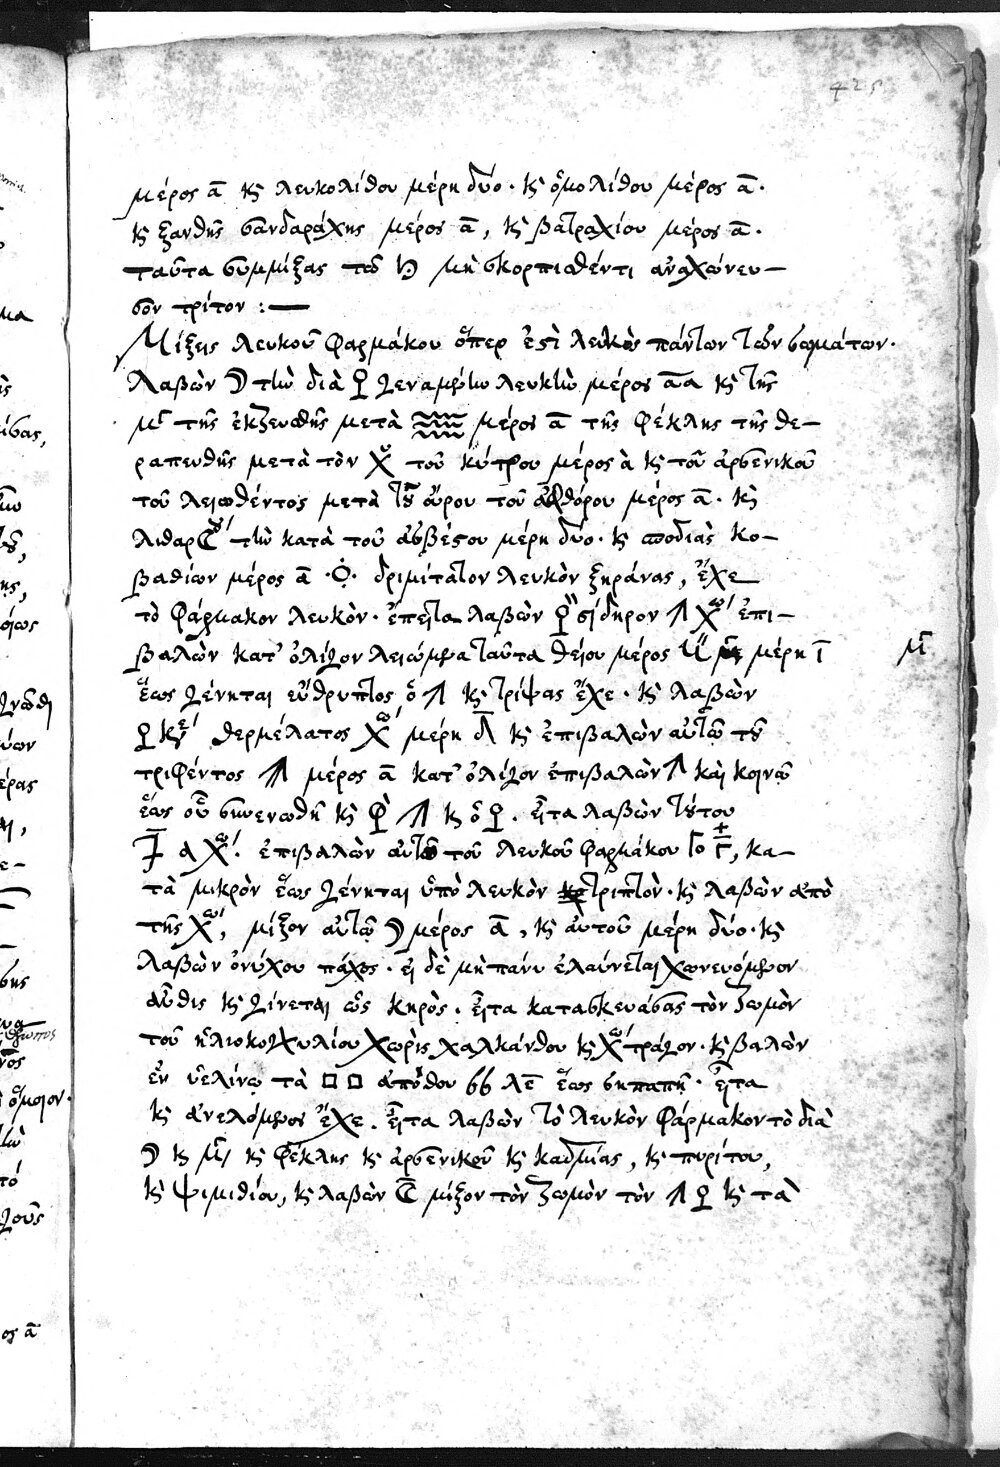 425
μέρος ᾱ κ̀ λευκολίθου μέρη δύο· κ̀ ὁμολίθου μέρος ᾱ·
κ̀ ξανθῆς σανδαράχης μέρος ᾱ, κ̀ βατραχίου μέρος ᾱ·
ταῦτα συμμίξας τῶ ♄ μὴ σκορπισθέντι ἀναχώνευ-
σον τρίτον :—
Μίξεις λευκοῦ φαρμάκου ὅπερ ἐστὶ λευκὸς πάντων τῶν σωμάτων·
λαβὼν ☽ τὴν διὰ ♀ γεναμένην λευκὴν μέρος ᾱ κ̀ τῆς
τῆς ἐκζευθῆς μετὰ ♒ μέρος ᾱ τῆς φέκλης τῆς θε-
ραπευθῆς μετὰ τὸν χ̀ τοῦ κύτρου μέρος ὰ κ̀ τοῦ ἀρσενικοῦ
τοῦ λειωθέντος μετὰ τοῦ οὔρου τοῦ ἀφθόρου μέρος ᾱ· κ̀
λιθαρ τὴν κατὰ τοῦ ἀσβέστου μέρη δύο· κ̀ σποδιὰς κο-
βαθίων μέρος ᾱ · δριμύτατον λευκὸν ξηράνας, ἔχε
τὸ φάρμακον λευκόν· ἔπειτα λαβὼν ♀ σίδηρον ἐπι-
βαλὼν κατ' ὀλίγον λειώμενα ταῦτα θείου μέρος μέρη ῑ
ἕως γένηται εὔθρυπτος ὁ κ̀ τρίψας ἔχε· κ̀ λαβὼν
♀ θερμέλατος μέρη δ̄ κ̀ ἐπιβαλὼν αὐτῶ τοῦ
τριφέντος μέρος ᾱ κατ' ὀλίγον ἐπιβαλὼν καὶ κοινῶ
ἕως οὗ συνενωθῆ κ̀ κ̀ ὁ ♀. εἶτα λαβὼν τούτου
α ἐπιβαλὼν αὐτῶ τοῦ λευκοῦ φαρμάκου γο γ̄, κα-
τὰ μικρὸν ἕως γένηται ὑπὸ λευκὸν τριπτόν· κ̀ λαβὼν ἀπὸ
τῆς μίξον αὐτῶ ☽ μέρος ᾱ, κ̀ αὐτοῦ μέρη δύο· κ̀
λαβὼν ὀνύχου πάχος· εἰ δὲ μὴ πάνυ ἐλαύνεται χωνευόμενον
αὖθις κ̀ γίνεται ὡς κηρὸς· εἶτα κατασκευάσας τὸν ζωμὸν
τοῦ ἡλιοκογχυλίου χωρὶς χαλκάνθου κ̀ · κ̀ βαλὼν
ἐν ὑελίνῳ τὰ □ □ ἀπόθου λε̄ ἕως σηπαπῆ· εἶτα
κ̀ ἀνελόμενος ἔχε. εἶτα λαβὼν τὸ λευκὸν φάρμακον τὸ διὰ
☽ κ̀ κ̀ φέκλης κ̀ ἀρσενικοῦ κ̀ καδμίας, κ̀ πυρίτου,
κ̀ ψιμιθίου, κ̀ λαβὼν μίξον τὸν ζωμὸν τὸν ♀ κ̀ τὰ